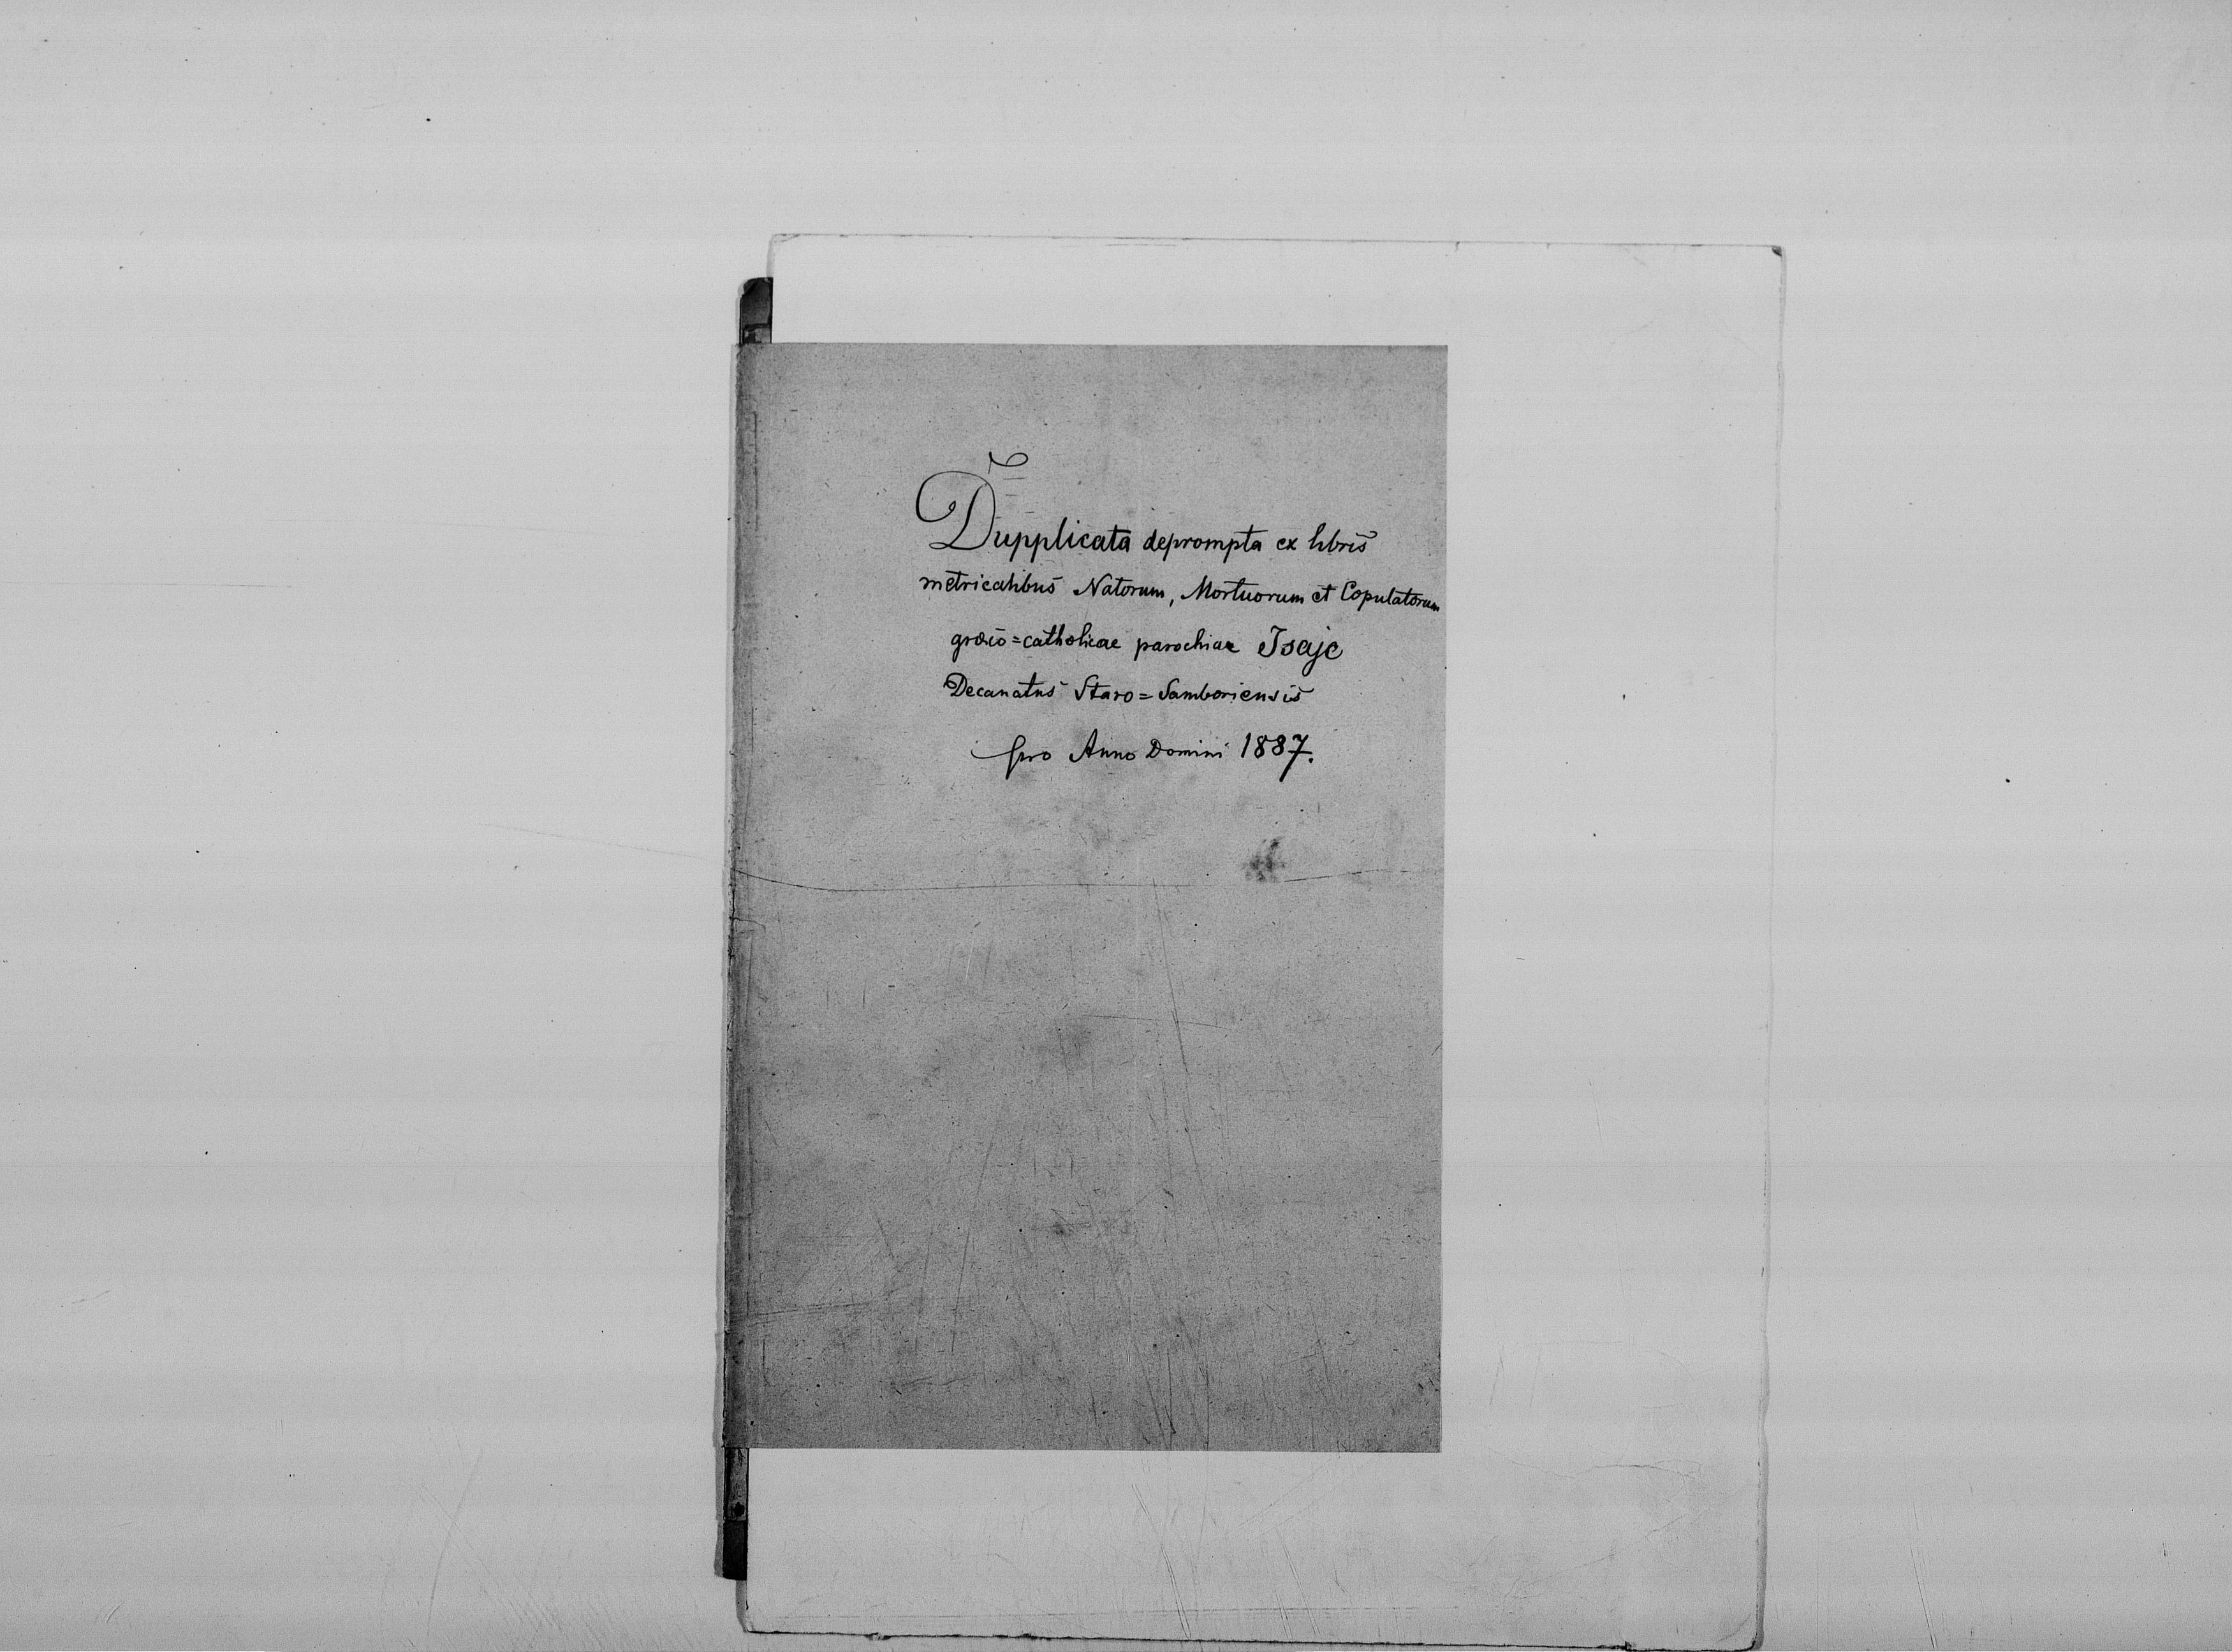 Dupplicata deprompta ex libris
metricalibus Natorum, Mortuorum et Copulatorum
græco=catholicae parochiae Isaje
Decanatus Staro=Samboriensis
pro Anno Domini 1887.